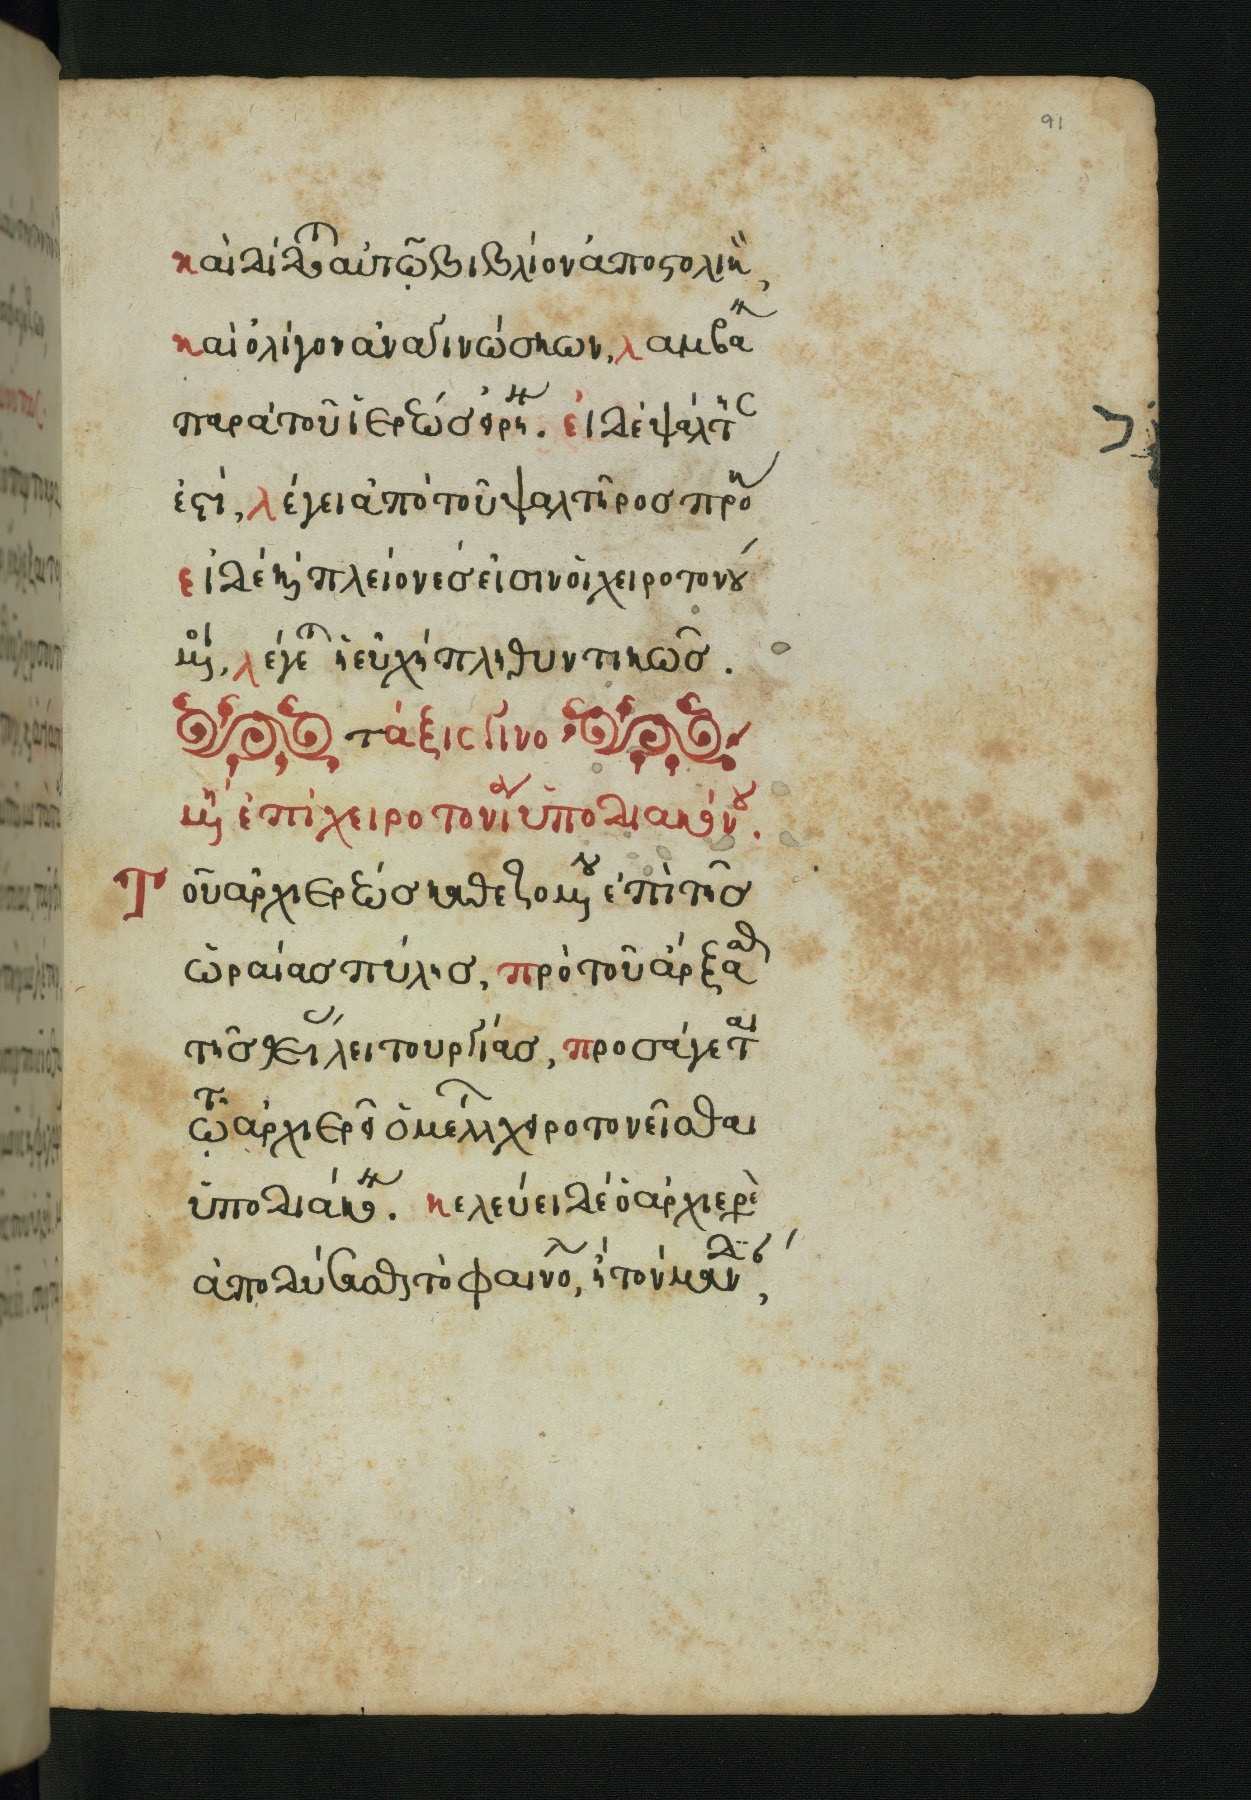 91
καὶ δίδωται αὐτῷ βιβλίον ἀποστολικὸν,
καὶ ὀλίγον ἀναγινώσκων, λαμβάνει
παρὰ τοῦ ἱερέως εἰρήνην. εἰ δὲ ψάλτης
ἐστὶ, λέγει ἀπὸ τοῦ ψαλτῆρος
εἰ δὲ καὶ πλείονές εἰσιν οἱ χειροτονού
μενοι, λέγεται ἡ εὐχὴ πληθυντικῶς.
τάξις γινο
μένη ἐπὶ χειροτονία ὑποδιακόνου.
Τοῦ ἀρχιερέως καθεζομένου ἐπὶ τῆς
ὡραίας πύλης, πρὸ τοῦ ἄρξασθαι
τῆς θείας λειτουργίας, προσάγεται
τῷ ἀρχιερεῖ ὁ μέλλων χειροτονεῖσθαι
ὑποδιάκονος. κελεύει δὲ ὁ ἀρχιερεὺς
ἀποδύσασθαι τὸ φαινόλιον, ἢ τὸν μανδύαν,